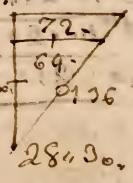 72.
69.
136
28,,30.